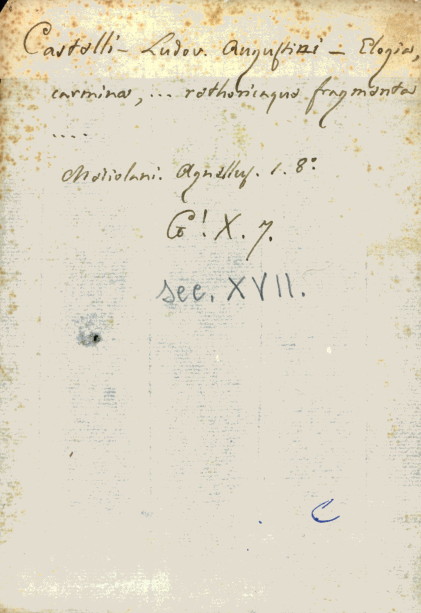 Castelli - Ludov. Augustini - Elogia,
carmina, ... rethoricaque fragmenta
....
Mediolani. Agnellus. 1. 8°.
G! X. 7.
sec. XVII.
C